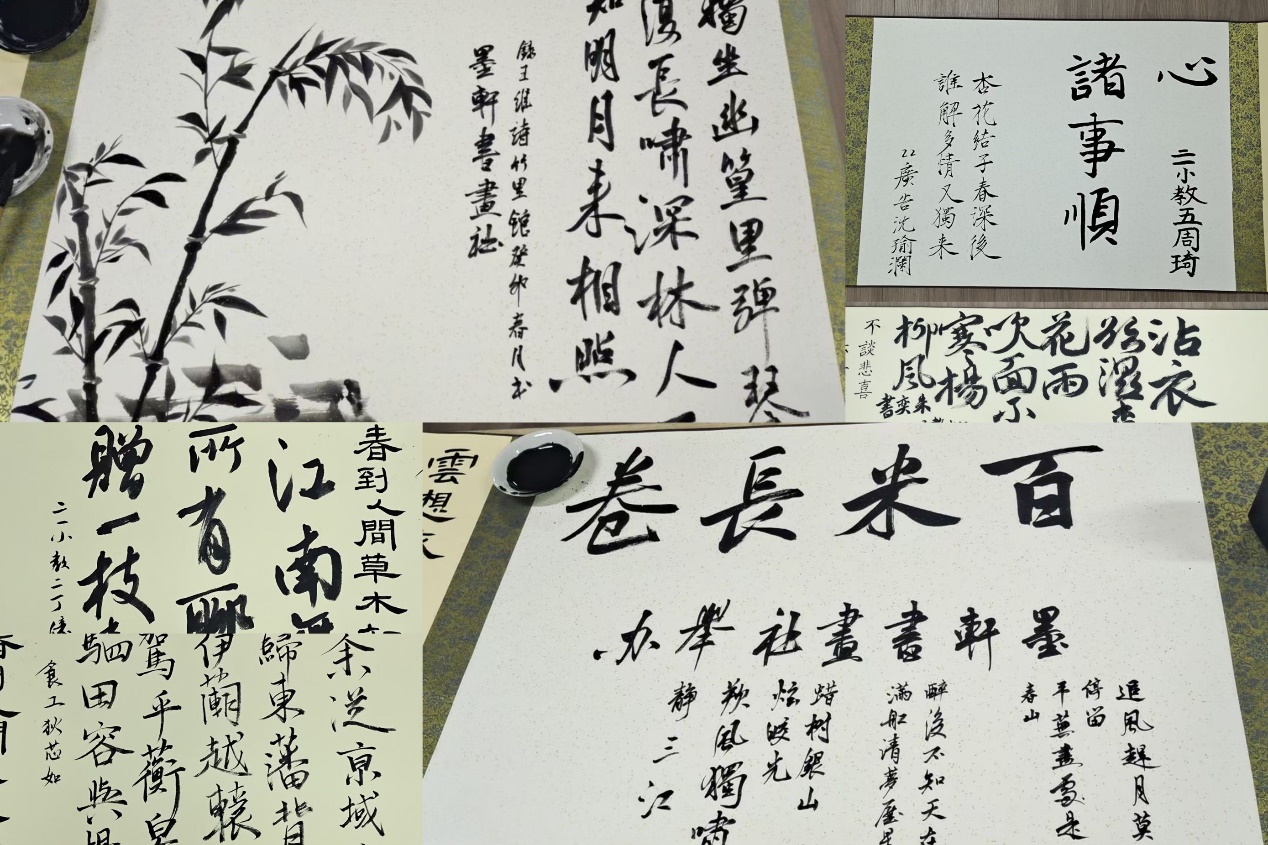 獨坐幽篁里彈琴
復長嘯深林人
知明月来相照
錄王維詩竹里館癸卯春月書
墨軒書畫社
心
二小教五周琦
諸事順
杏花结子春深後
誰解多情又獨来
22廣告沈瑜瀾
沾衣
欲濕杏
花雨
吹面不
寒楊
柳風
朱奕
書
不談悲喜
春到人間草木
江南
所有聊
贈一枝
二一小教二丁
雲想衣
余從京域
歸東藩背
伊闕越轘
駕乎蘅皋
駟田容與
食工狄芯如
百米長卷
墨軒書畫社舉办
追風趕月莫
停留
平蕪盡處是
春山
醉後不知天在
滿船清夢壓星
蜡树銀山
炫皎光
朔風獨嘯
靜三江